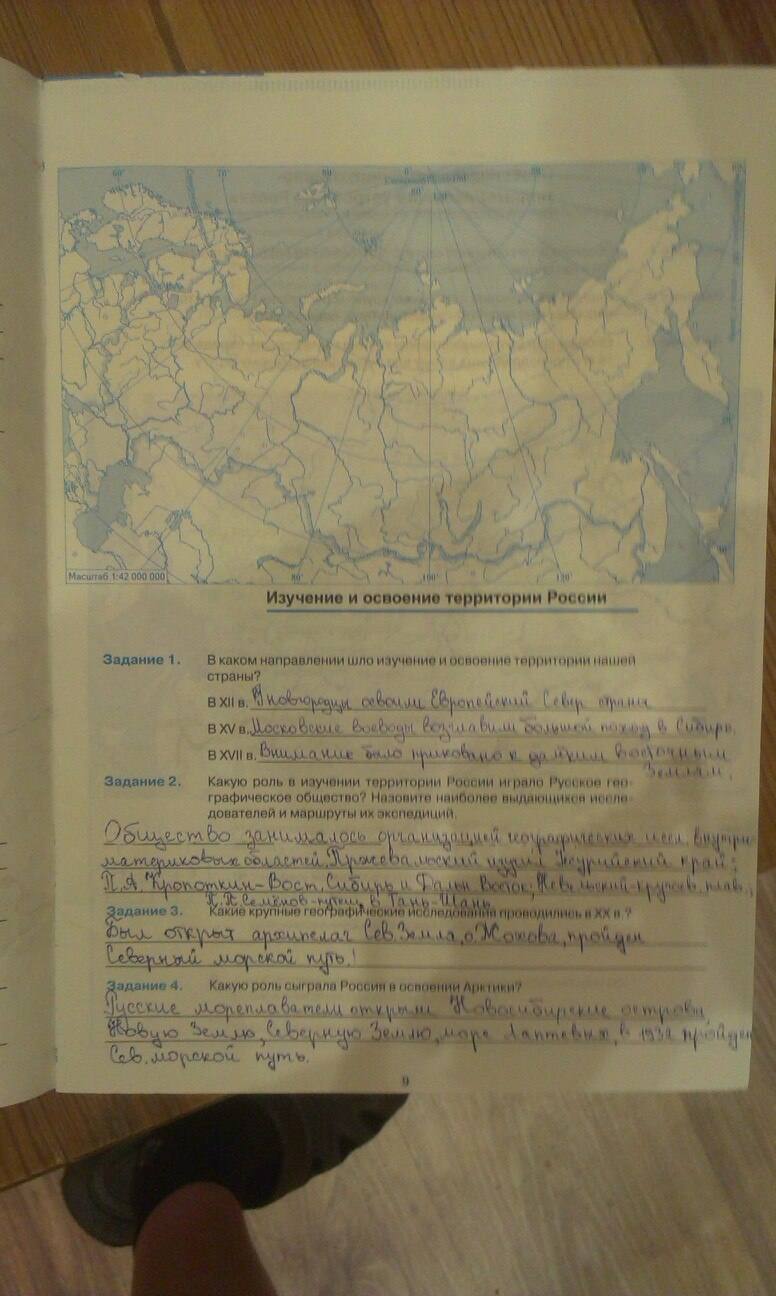 60°
70°
80°
0°
80°
120°
Масштаб 1:42 000 000
80°
100°
120°
Изучение и освоение территории России
Задание 1. В каком направлении шло изучение и освоение территории нашей
страны?
В XII в. Новгородцы освоили Европейский Север страны
В XV в. Московские воеводы возглавили большой поход в Сибирь.
В XVII в. Внимание было приковано к далёким восточным
землям.
Задание 2. Какую роль в изучении территории России играло Русское гео-
графическое общество? Назовите наиболее выдающихся иссле-
дователей и маршруты их экспедиций.
Общество занималось организацией географических иссл. внутри-
материковых областей. Пржевальский изучил Уссурийский край;
П.А. Кропоткин-Вост. Сибирь и Дальн Восток; Невельский-кругосв. плав.;
П.П. Семёнов-путеш. в Тянь-Шань
Задание 3. Какие крупные географические исследования проводились в XX в.?
Был открыт архипелаг Сев. Земля, о. Жохова, пройден
Северный морской путь!
Задание 4. Какую роль сыграла Россия в освоении Арктики?
Русские мореплаватели открыли Новосибирские острова,
Новую Землю, Северную Землю, море Лаптевых, в 1932 пройден
Сев. морской путь.
9